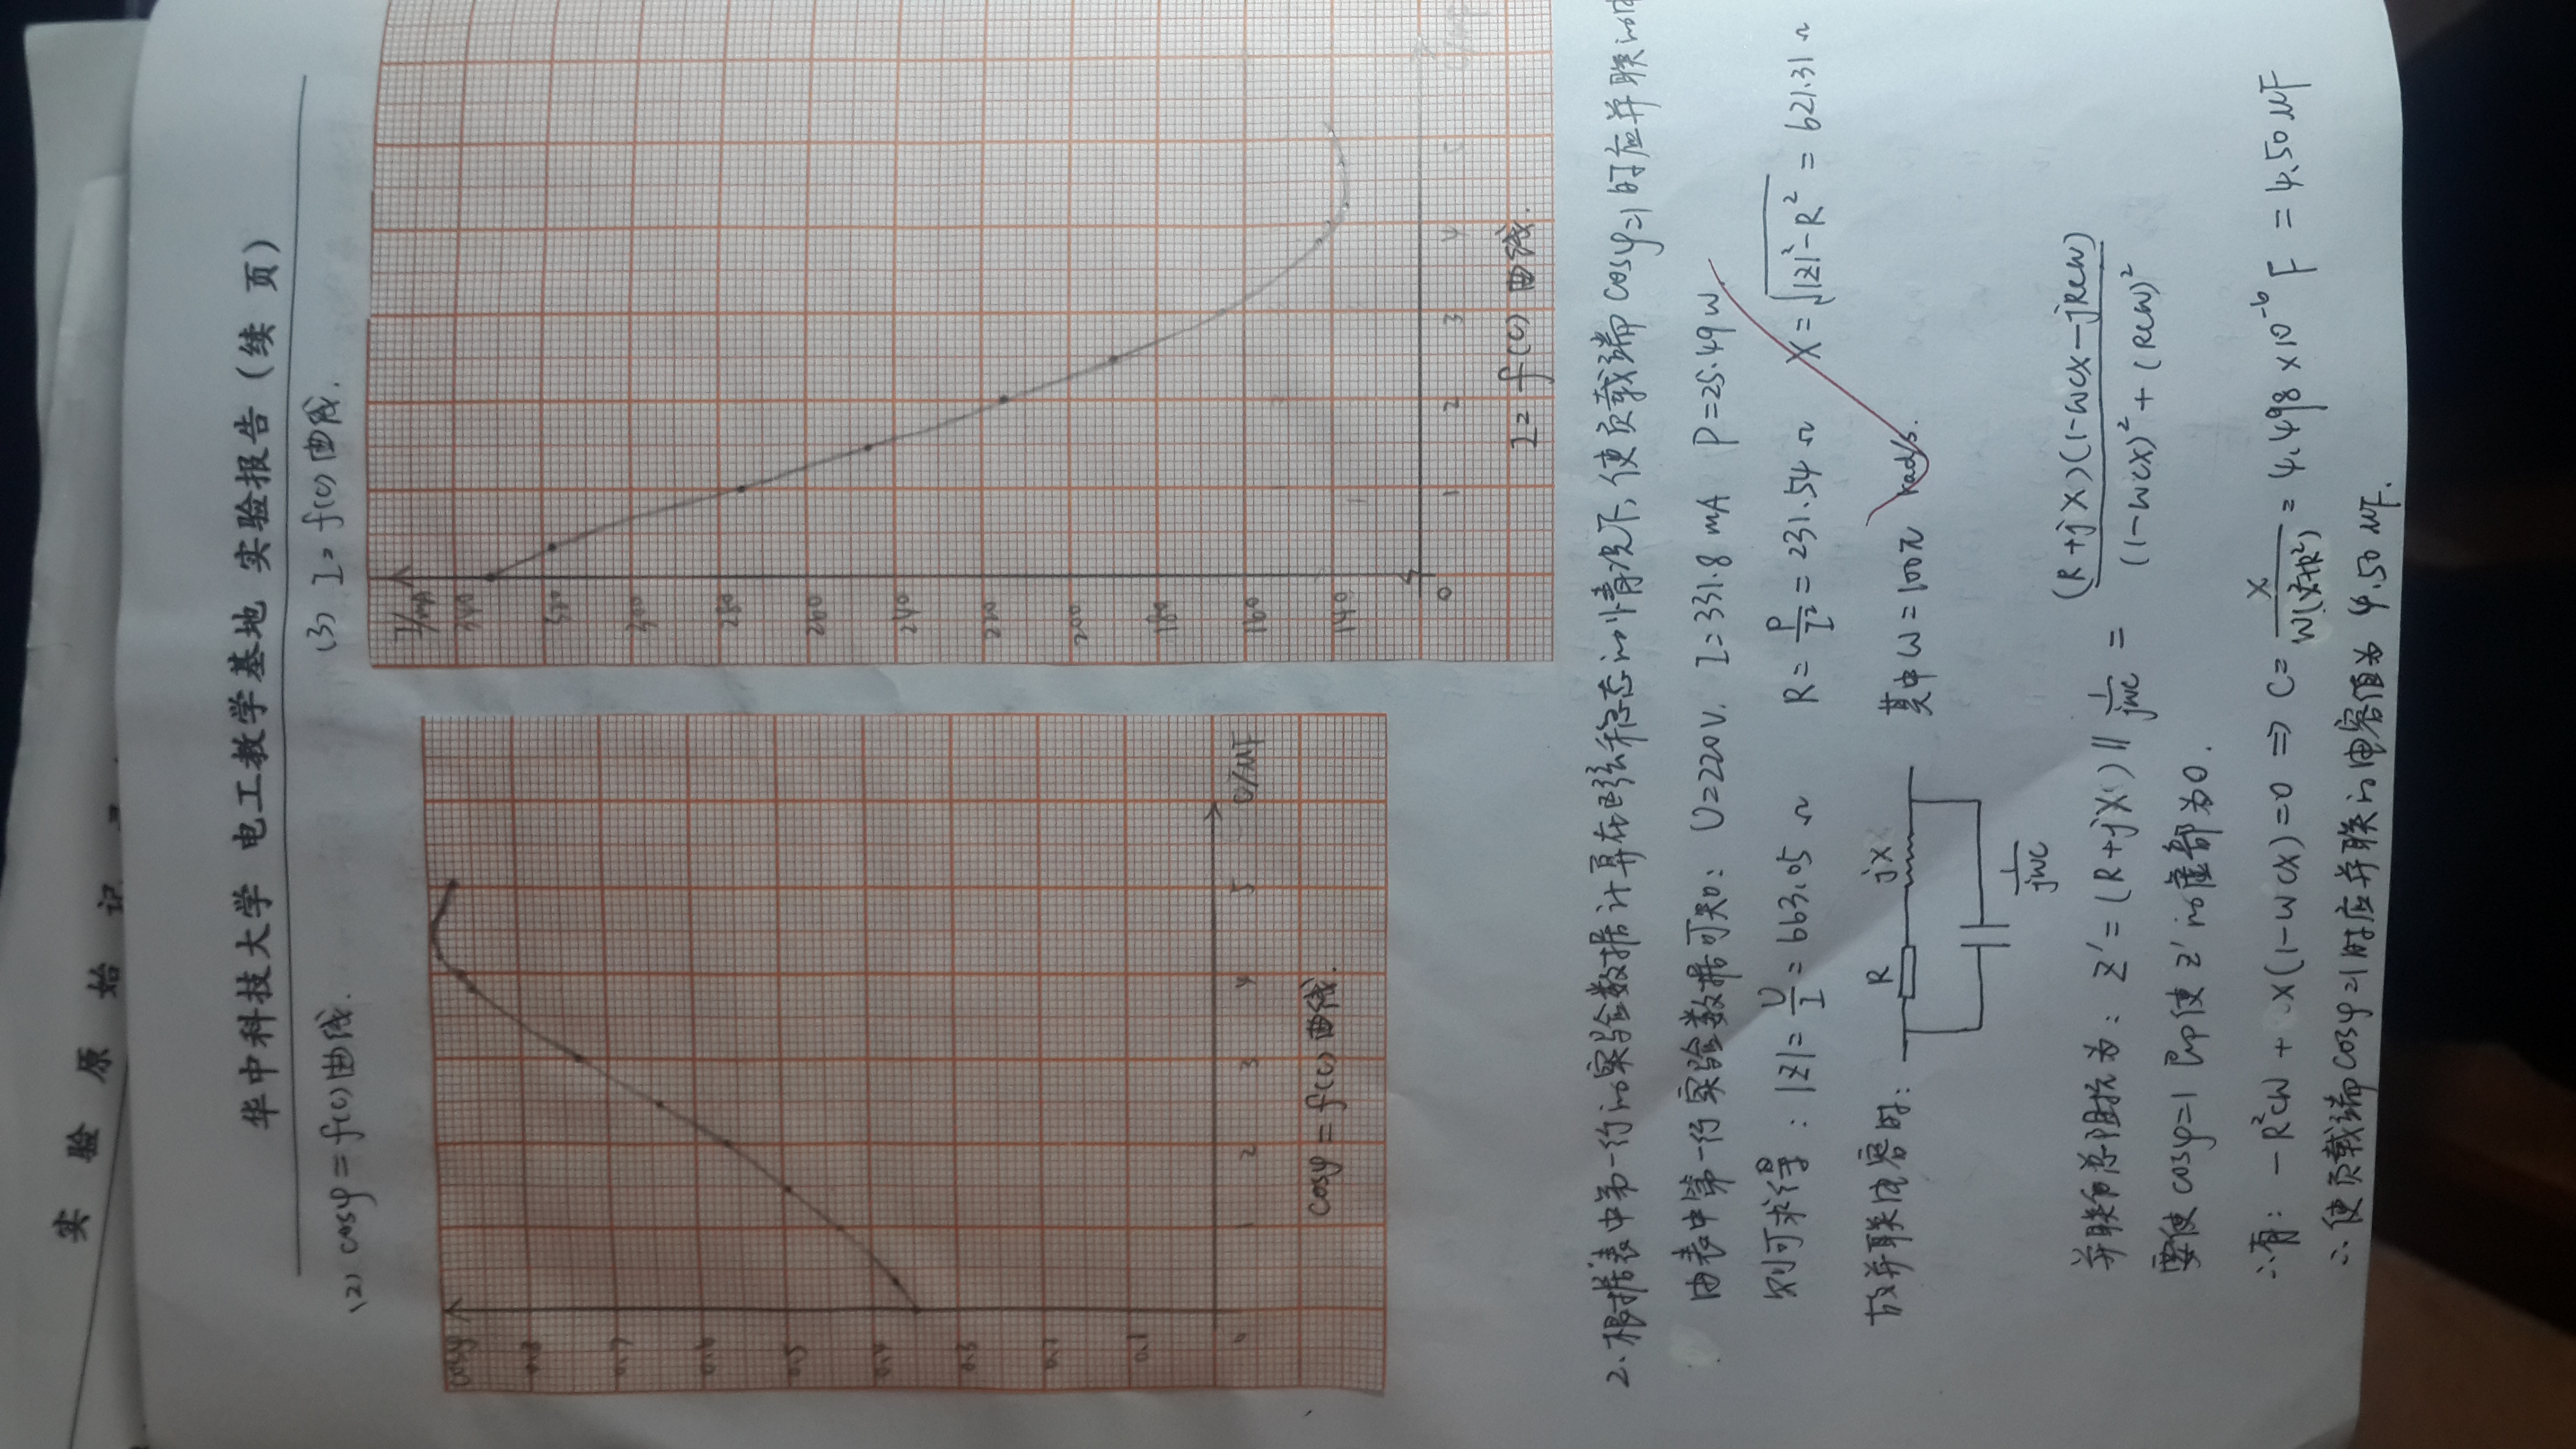 实验原始记
华中科技大学 电工教学基地 实验报告(续 页)
(2) cosφ = f(c) 曲线.
(3) I = f(c) 曲线.
cosφ
0.8
0.7
0.6
0.5
0.4
0.3
0.1
0 1 2 3 4 5 C/μF
cosφ = f(c) 曲线.
I/mA
340
320
300
280
260
240
220
200
180
160
140
0 1 2 3 4 5
I = f(c) 曲线.
2. 根据表中第一行的实验数据计算在正弦稳态的情况下, 使负载端 cosφ=1 时应并联的
由表中第一行实验数据可知: U=220V. I=331.8 mA P=25.49 W.
则可求得: |Z|= U/I = 663.05 Ω R= P/I² = 231.54 Ω X= √(|Z|²-R²) = 621.31 Ω
故并联电容时: R jX 其中 ω=100π rad/s.
1/jωC
并联后总阻抗为: Z' = (R+jX) ∥ 1/jωC = (R+jX)(1-ωCX-jRCω) / (1-ωCX)²+(RCω)²
要使 cosφ=1 即使 Z' 的虚部为0.
∴有: -R²Cω + X(1-ωCX)=0 ⇒ C= X/ω(X²+R²) = 4.498×10⁻⁶ F = 4.50 μF
∴使负载端 cosφ=1 时应并联的电容值为 4.50 μF.